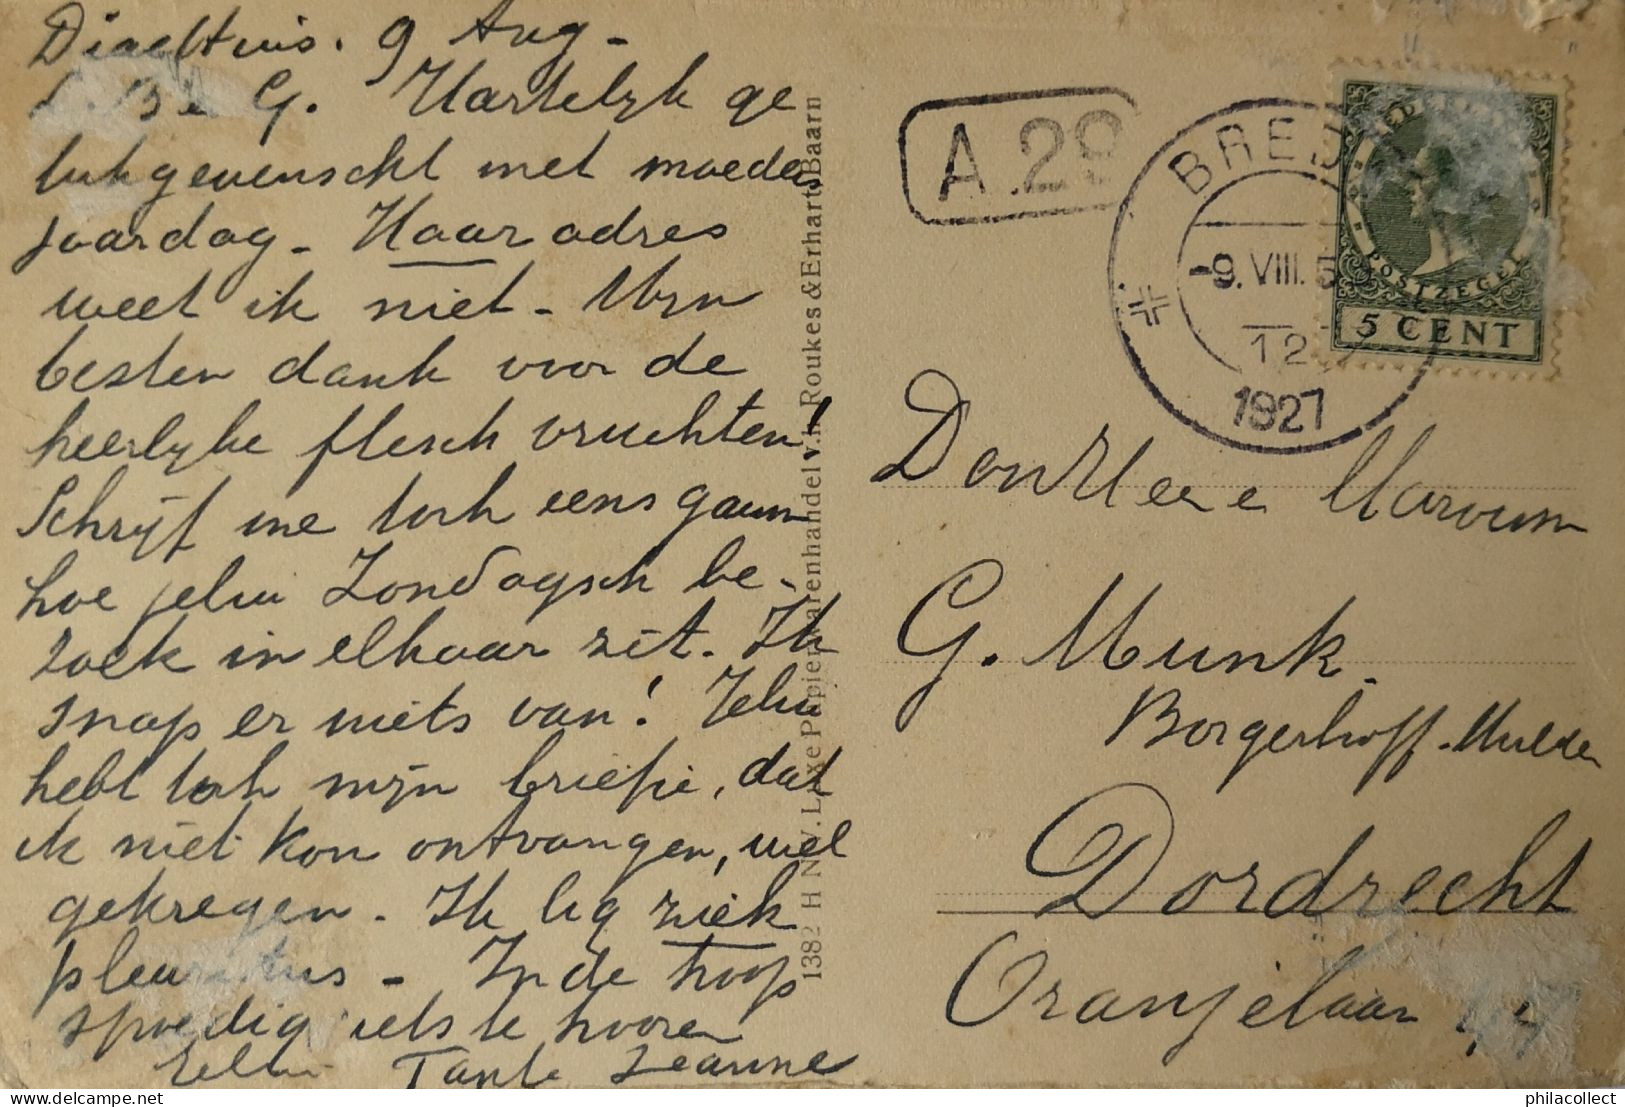 9 Aug -
G. Hartelijk ge
lukgewenscht met moeders
jaardag - Haar adres
weet ik niet - Mijn
besten dank voor de
heerlijke flesch vruchten!
Schrijf me toch eens gauw
hoe jelui Zondagsch be-
zoek in elkaar zit. Ik
snap er niets van! Jelui
hebt toch mijn briefie, dat
ik niet kon ontvangen, wel
gekregen. Ik lig ziek
pleuritus - In de hoop
spoedig iets te hooren
Tante Jeanne
1382 H N.V. Luxe Papierwarenhandel v.h. Roukes & Erhart Baarn
A.29
BRED
-9.VIII.5
12
1927
POSTZEGEL
5 CENT
Den Heere
G. Munk.
Borgerhoff-Mulder
Dordrecht
Oranjelaan
philacollect